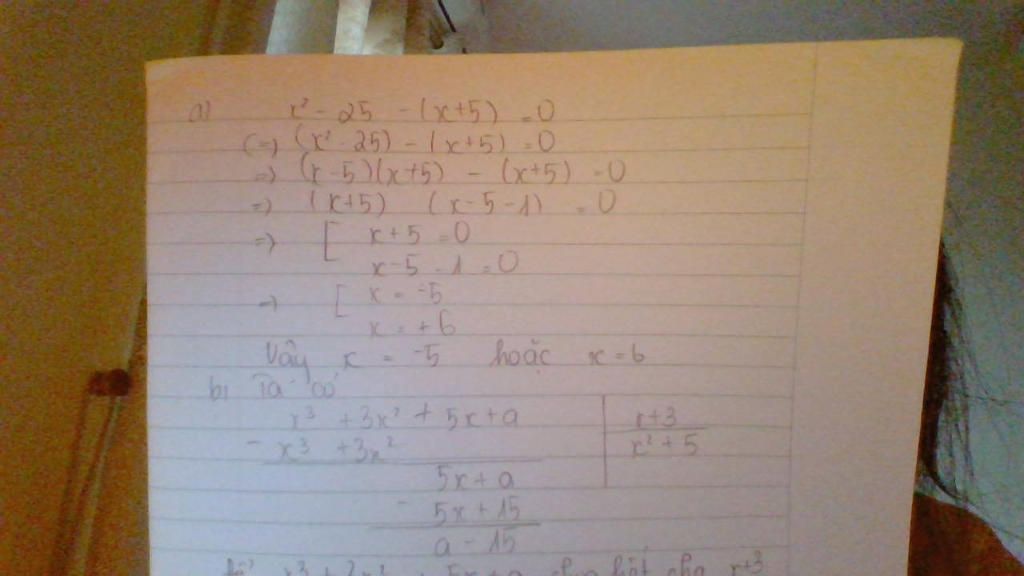 a) x² - 25 - (x+5) = 0
(=) (x² - 25) - (x+5) = 0
=) (x-5)(x+5) - (x+5) = 0
=) (x+5) (x-5-1) = 0
=) [ x+5 = 0
x-5-1 = 0
=) [ x = -5
x = +6
Vậy x = -5 hoặc x = 6
b) Ta có
x³ + 3x² + 5x + a | x+3
- x³ + 3x² | x² + 5
5x + a
- 5x + 15
a - 15
x³ + 3x² + 5x + a chia hết cho x+3